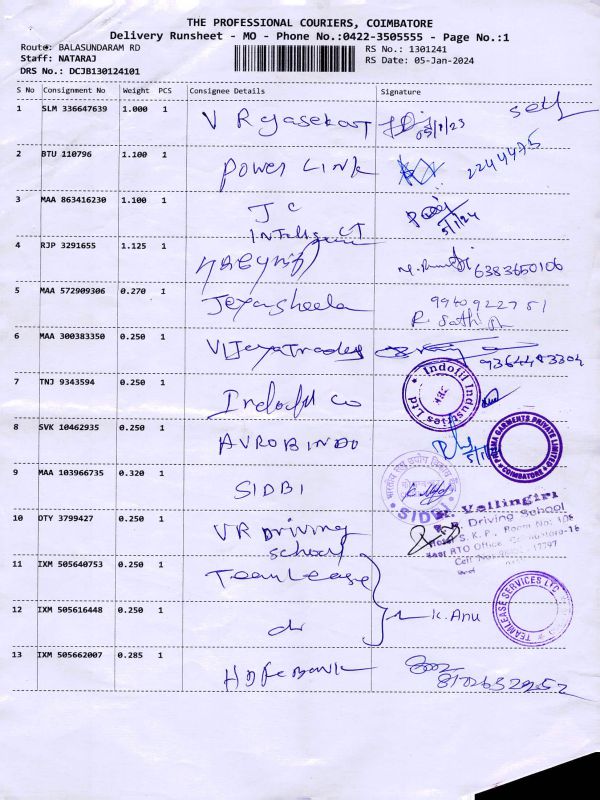 THE PROFESSIONAL COURIERS, COIMBATORE
Delivery Runsheet - MO - Phone No.:0422-3505555 - Page No.:1
Route: BALASUNDARAM RD RS No.: 1301241
Staff: NATARAJ RS Date: 05-Jan-2024
DRS No.: DCJB130124101
S No Consignment No Weight PCS Consignee Details Signature
1 SLM 336647639 1.000 1 V R 05/1/23
2 BTU 110796 1.100 1 Power Link 2244475
3 MAA 863416230 1.100 1 J C 5/1/24
4 RJP 3291655 1.125 1 6383650106
5 MAA 572909306 0.270 1 Jeyasheela
R. Sathish
6 MAA 300383350 0.250 1 Vijaya Trades 9364443304
7 TNJ 9343594 0.250 1 Indofil co Indofil Industries Ltd
8 SVK 10462935 0.250 1 AVROBINDO GARMENTS PRIVATE LIMITED COIMBATORE
9 MAA 103966735 0.320 1 SIDBI SIDBI
10 OTY 3799427 0.250 1 VR Driving Vellingiri
School Driving School
S.K.P. Room No: 106
RTO Office
11 IXM 505640753 0.250 1 TeamLease
12 IXM 505616448 0.250 1 do K. Anu TEAMLEASE SERVICES LTD
13 IXM 505662007 0.285 1 Hdfc Bank